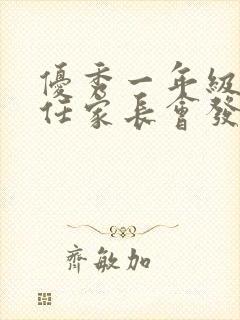 優秀一年級
任家長會發
齊敏加